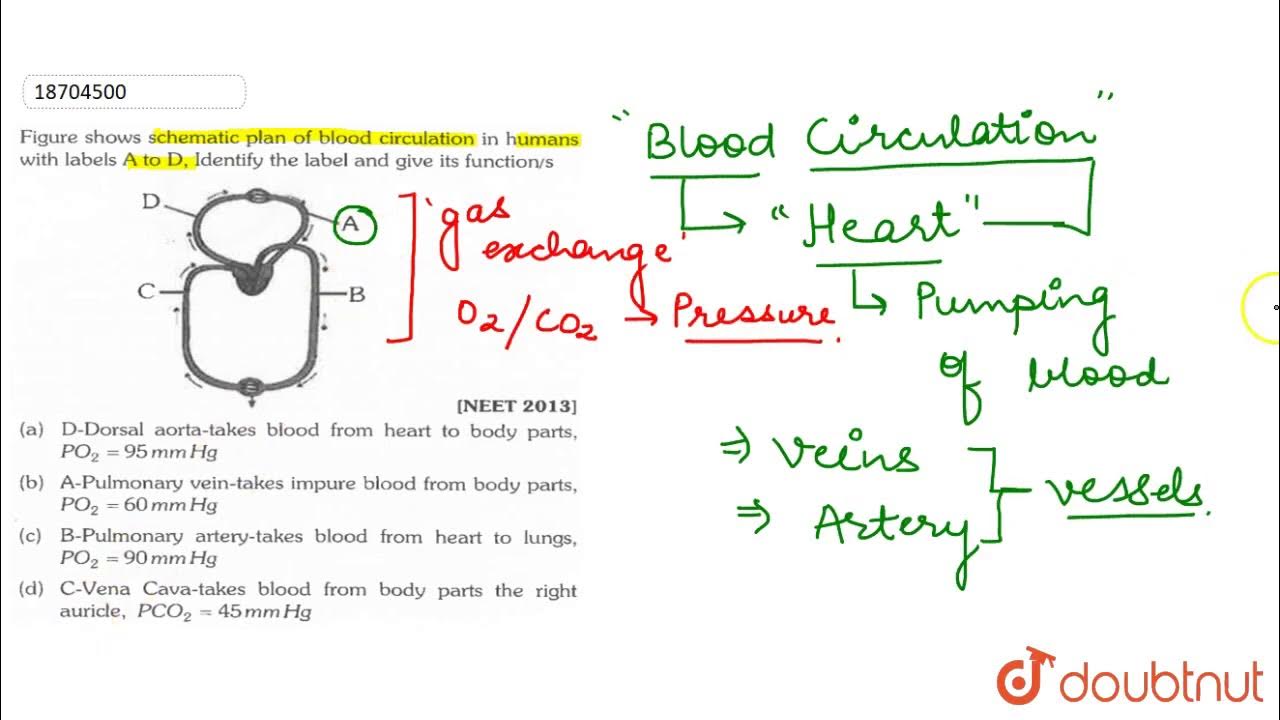 18704500
Figure shows schematic plan of blood circulation in humans
with labels A to D, Identify the label and give its function/s
D
A
C
B
[NEET 2013]
(a) D-Dorsal aorta-takes blood from heart to body parts,
PO₂ = 95 mm Hg
(b) A-Pulmonary vein-takes impure blood from body parts,
PO₂ = 60 mm Hg
(c) B-Pulmonary artery-takes blood from heart to lungs,
PO₂ = 90 mm Hg
(d) C-Vena Cava-takes blood from body parts the right
auricle, PCO₂ = 45 mm Hg
'gas
exchange'
O₂/CO₂ → Pressure
"Blood Circulation"
"Heart"
Pumping
of blood
⇒ Veins
⇒ Artery
vessels
doubtnut